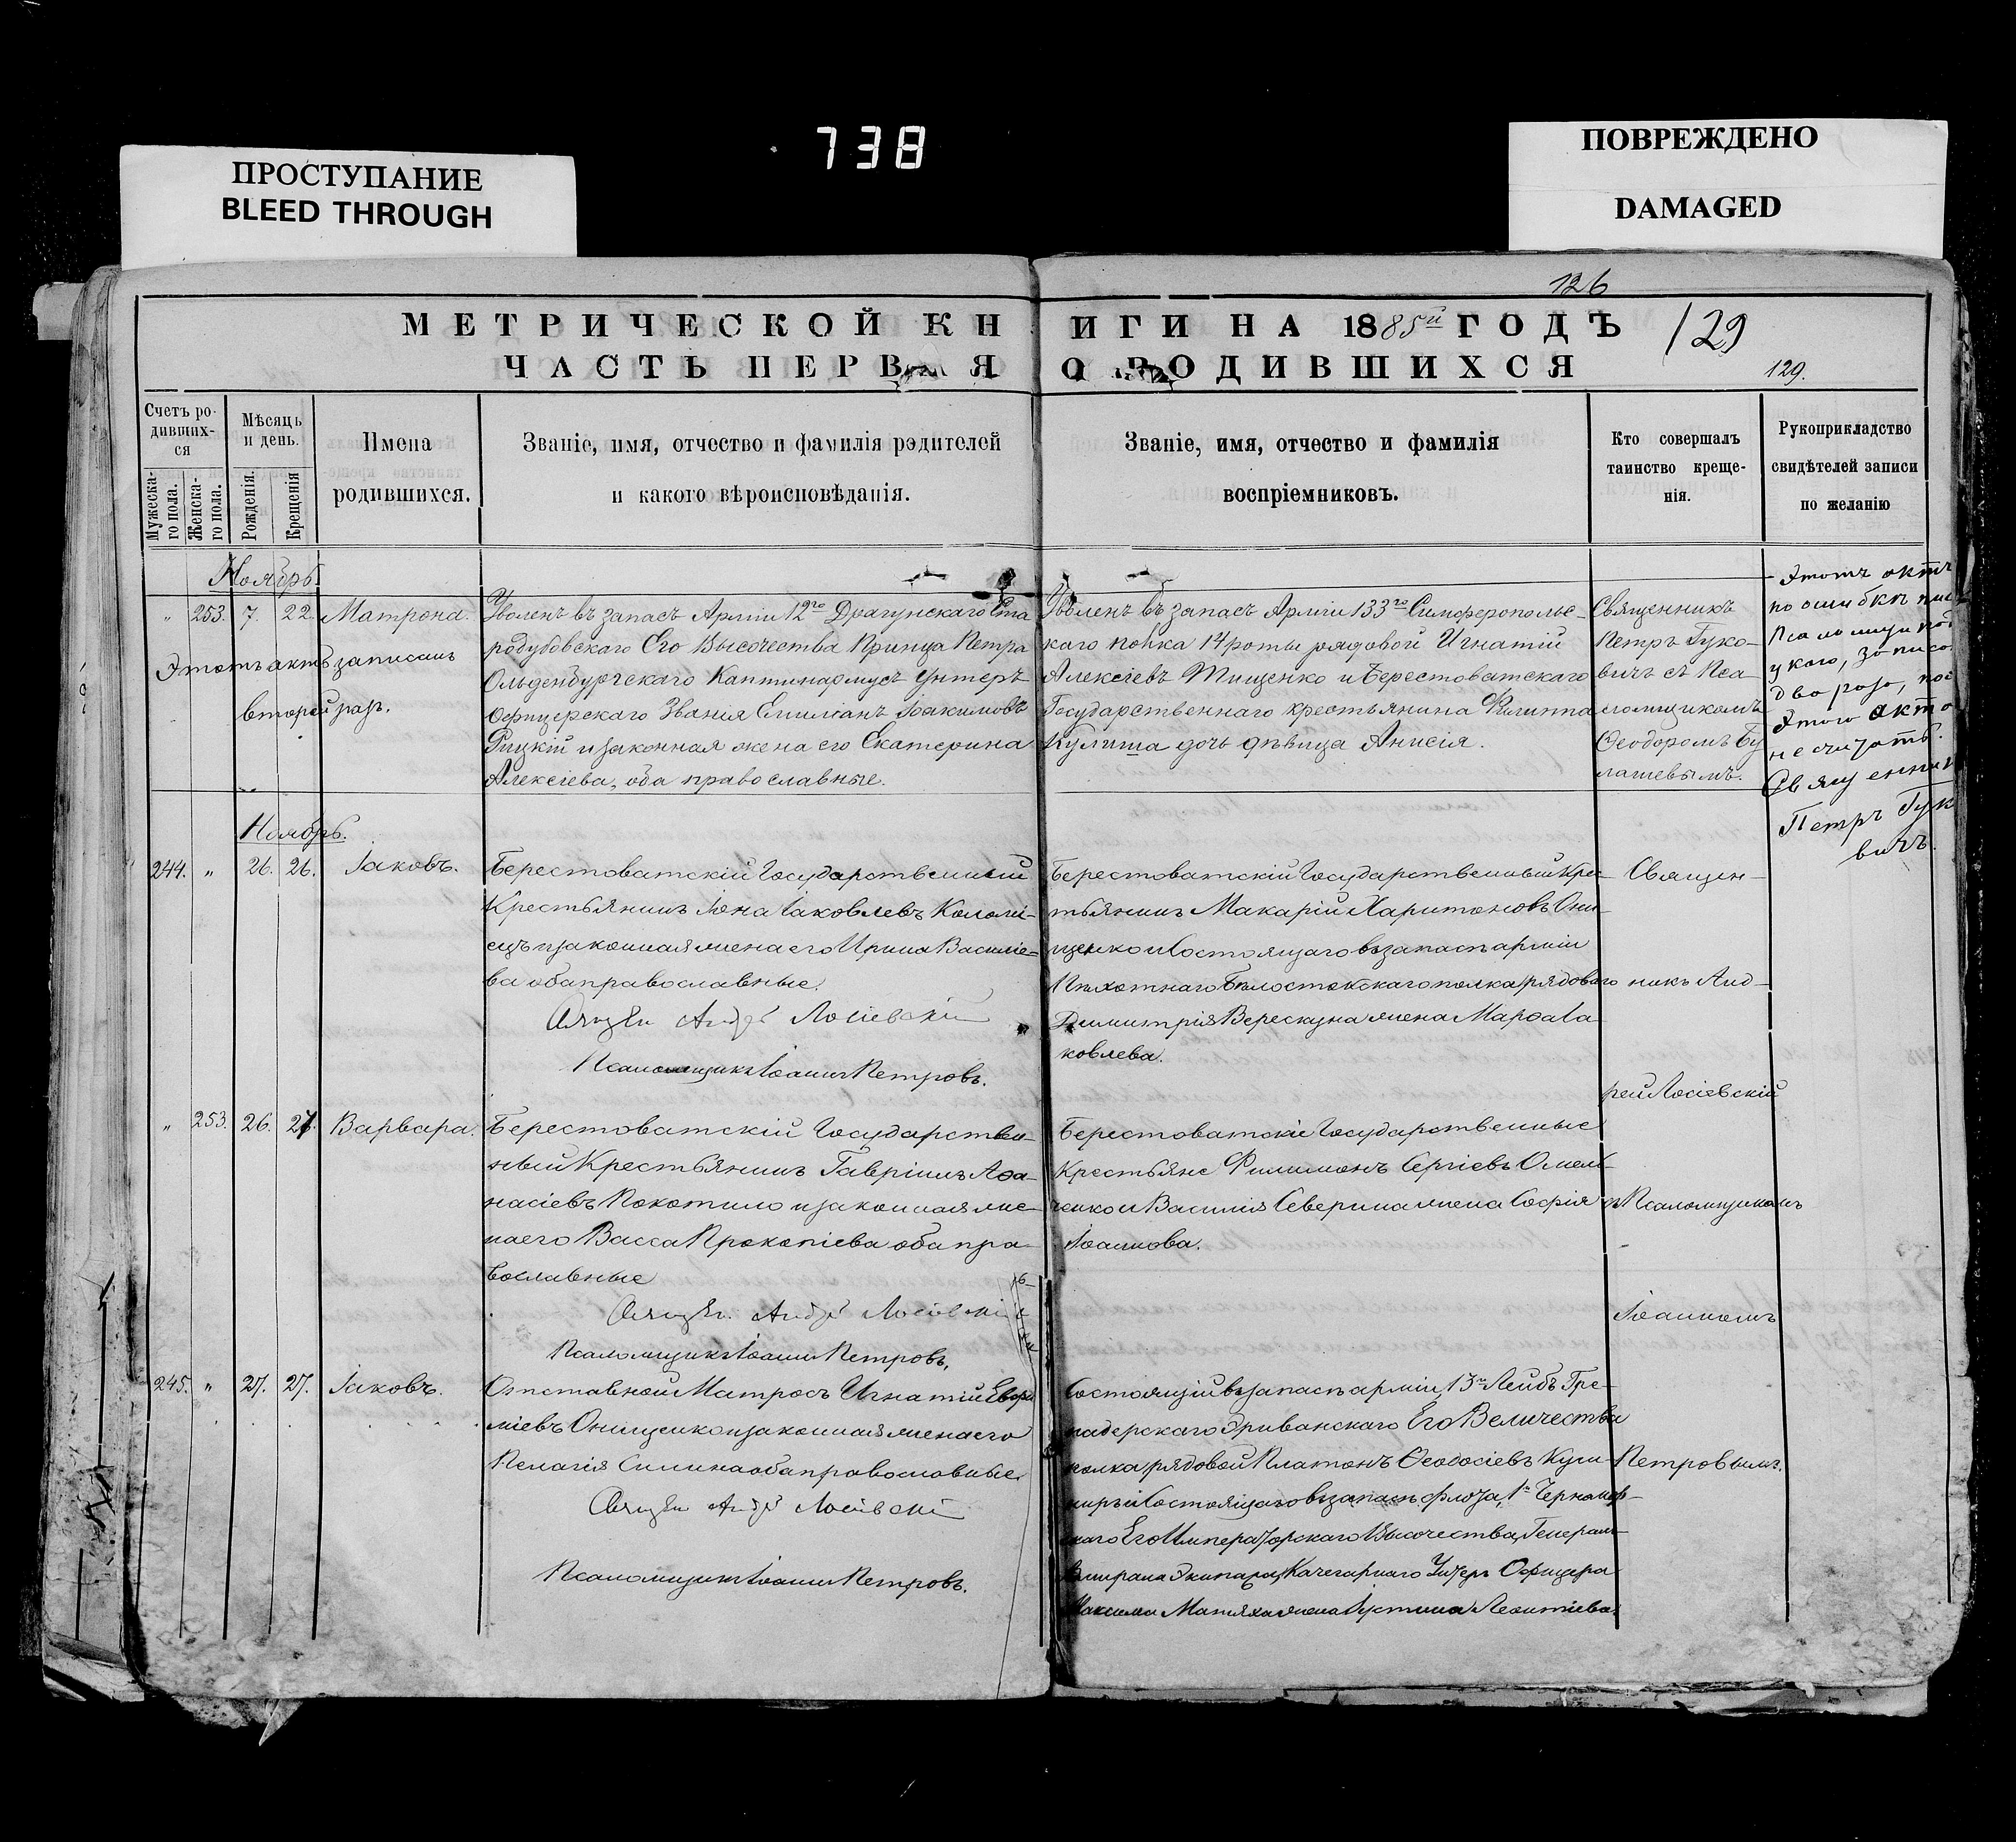 738
ПРОСТУПАНИЕ
BLEED THROUGH
ПОВРЕЖДЕНО
DAMAGED
126
МЕТРИЧЕСКОЙ КНИГИ НА 1885й ГОДЪ
129
ЧАСТЬ ПЕРВАЯ О РОДИВШИХСЯ
129.
Счетъ ро-
дивших-
ся
Мужеска-
го пола.
Женска-
го пола.
Мѣсяцъ
и день.
Рожденія.
Крещенія
Имена
родившихся.
Званіе, имя, отчество и фамилія родителей
и какого вѣроисповѣданія.
Званіе, имя, отчество и фамилія
воспріемниковъ.
Кто совершалъ
таинство креще-
нія.
Рукоприкладство
свидѣтелей записи
по желанію
Ноябрь.
" 253. 7. 22. Матрона.
Этотъ актъ записанъ
второй разъ.
Уволенъ въ запасъ Арміи 12го Драгунскаго Ста
родубовскаго Его Высочества Принца Петра
Ольденбургскаго Каптинармусъ Унтеръ
Офицерскаго Званія Емиліанъ Іоакимовъ
Рицкій и законная жена его Екатерина
Алексіева, оба православные.
Уволенъ въ запасъ Арміи 133го Симферопольс-
каго полка 14 роты рядовой Игнатій
Алексіевъ Тищенко и Берестоватскаго
Государственнаго крестьянина Филиппа
Кулиша дочь дѣвица Анисія.
Священникъ
Петръ Гуко-
вичъ съ Пса
ломщикомъ
Ѳеодоромъ Бу
лашевымъ.
Этотъ актъ
по ошибкѣ
записа
два раза,
Этого акта
не считать.
Священник
Петръ Гуко
вичъ.
Ноябрь.
244. " 26. 26. Іаковъ.
Берестоватскій Государственный
Крестьянинъ Іона Іаковлевъ Коломі-
ецъ и законная жена его Ирина Василіе-
ва оба православные.
Священ Андрей Лосіевскій
Псаломщикъ Іоаннъ Петровъ.
Берестоватскій Государственный Крес-
тьянинъ Макарій Харитоновъ Они-
щенко и Состоящаго въ запасѣ арміи
Пѣхотнаго Бѣлостокскаго полка, рядоваго
Димитрія Верескуна жена Марѳа Іа
ковлева.
Священ-
никъ Анд-
рей Лосіевскій
" 253. 26. 27. Варвара.
Берестоватскій Государствен-
ный Крестьянинъ Гавріилъ Аѳа-
насіевъ Покотило и законная же-
на его Васса Прокопіева оба пра-
вославные
Священ. Андрей Лосіевскій
Псаломщикъ Іоаннъ Петровъ.
Берестоватскіе Государственные
Крестьяне Филимонъ Сергіевъ Омель-
ченко и Василія Северина жена Софія
Іоаннова.
съ Псаломщикомъ
Іоанномъ
245. " 27. 27. Іаковъ.
Отставной Матросъ Игнатій Евфи
міевъ Онищенко и законная жена его
Пелагія Симина оба православные.
Священ Андрей Лосіевскій
Псаломщикъ Іоаннъ Петровъ.
Состоящій въ запасѣ арміи, 13го Лейбъ Гре-
надерскаго Эриванскаго Его Величества
полка, рядовой Платонъ Ѳеодосіевъ
и Состоящаго въ запасѣ флота, 1го Черномор-
скаго Его Императорскаго Высочества, Генералъ
Адмирала Экипажа, Качегарнаго Унтеръ Офицера
Максима жена Іустина Леонтіева.
Петровымъ.